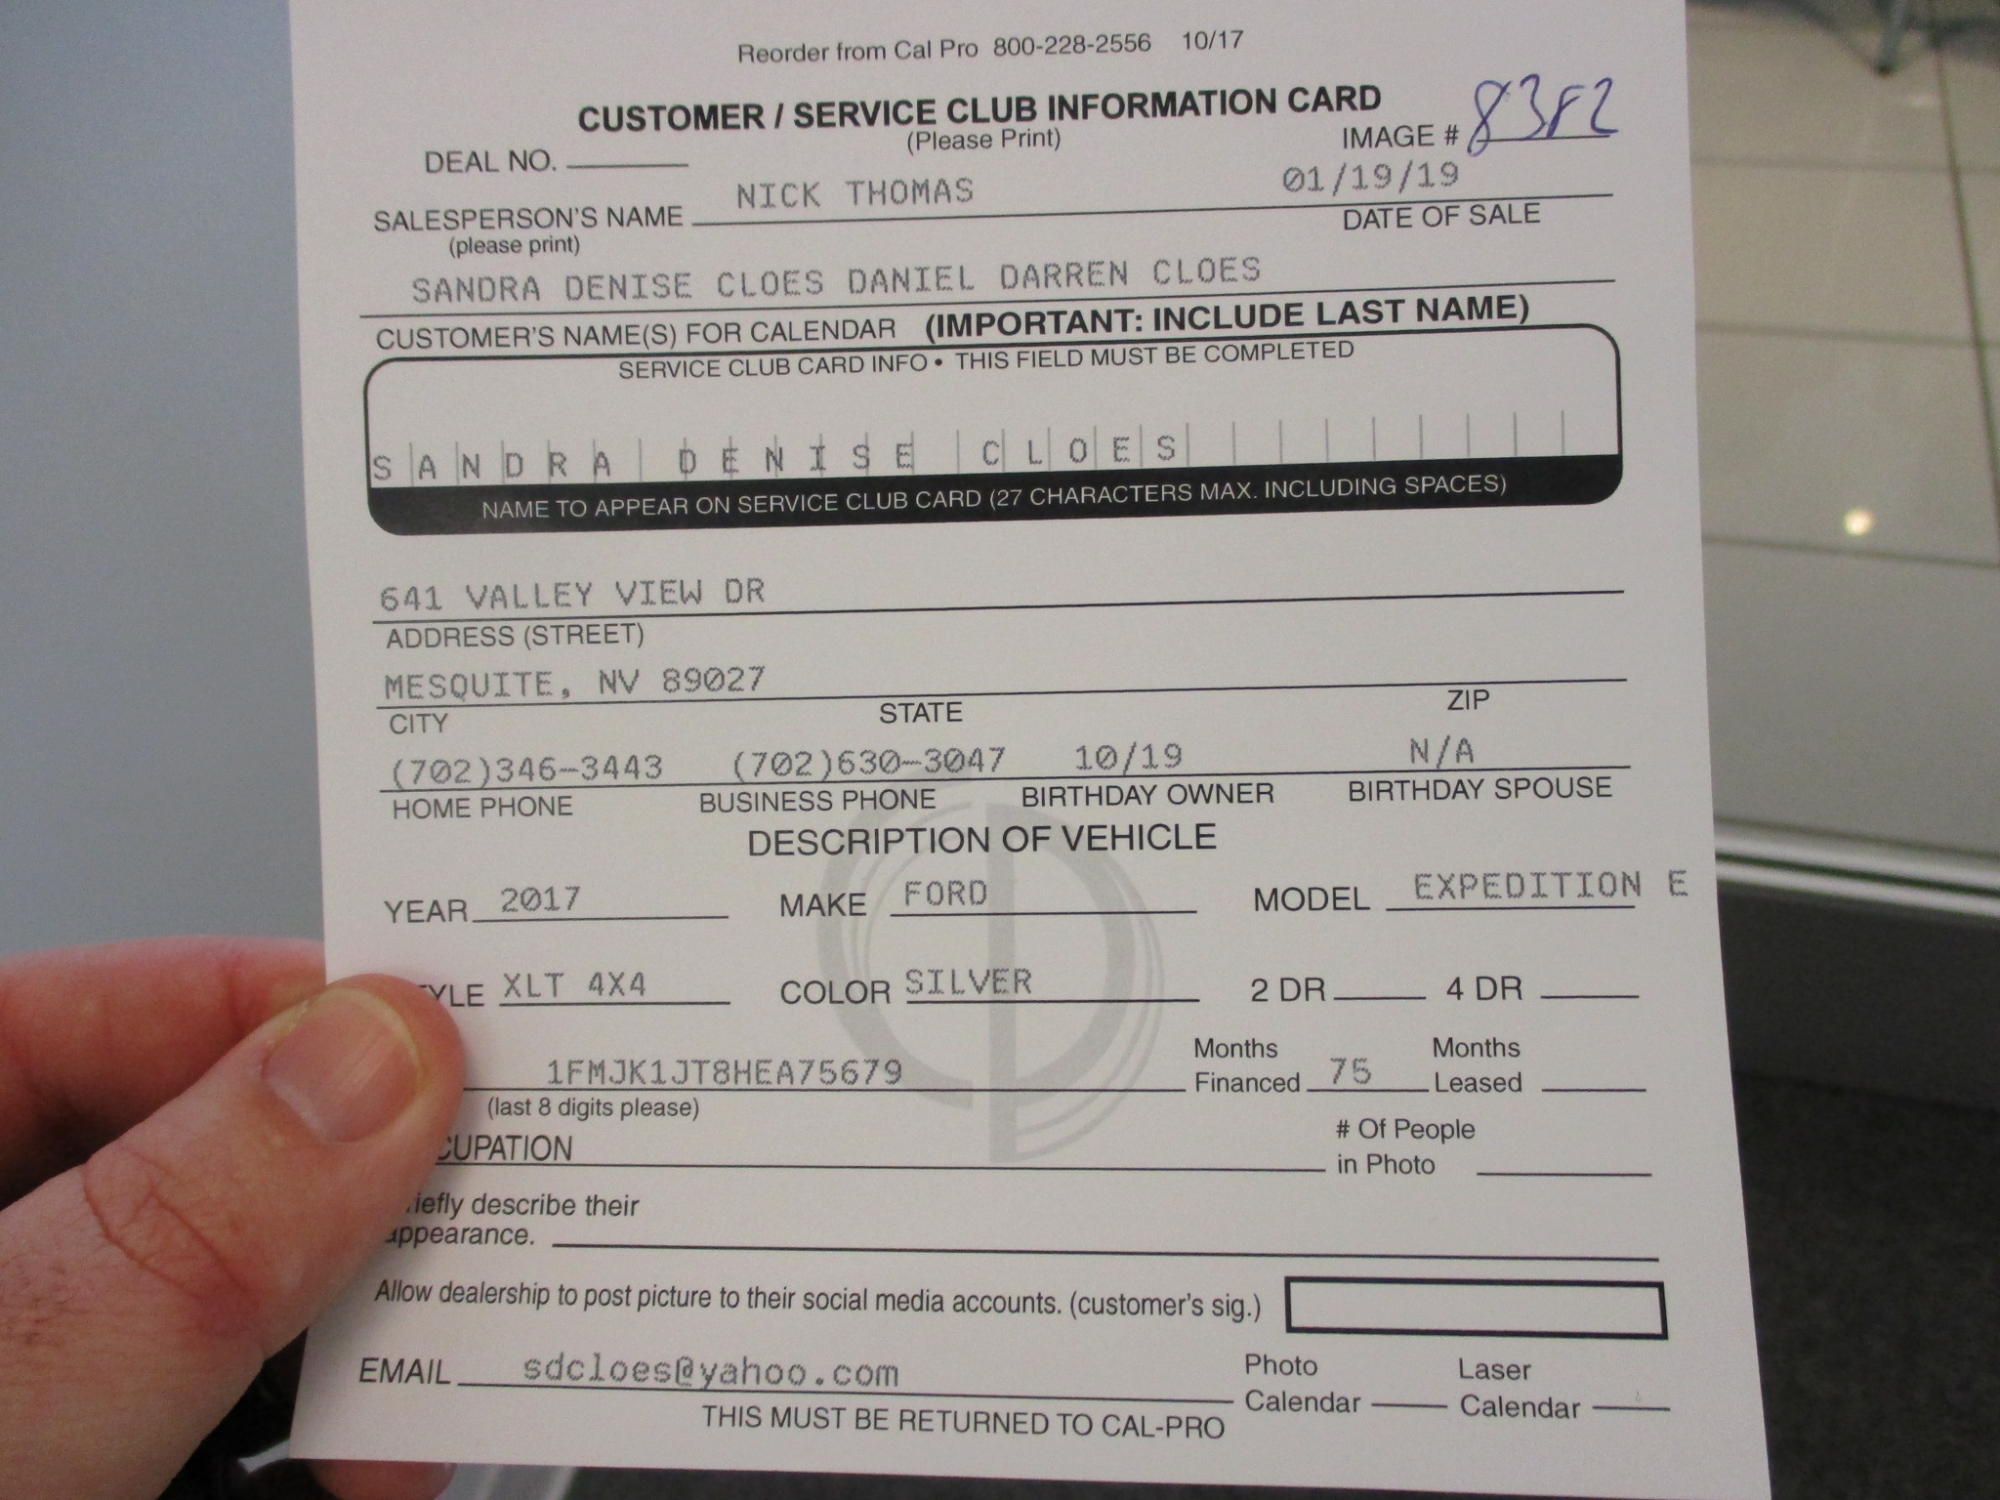 Reorder from Cal Pro 800-228-2556 10/17
CUSTOMER / SERVICE CLUB INFORMATION CARD
(Please Print)
IMAGE #
DEAL NO.
NICK THOMAS 01/19/19
SALESPERSON'S NAME DATE OF SALE
(please print)
SANDRA DENISE CLOES DANIEL DARREN CLOES
CUSTOMER'S NAME(S) FOR CALENDAR (IMPORTANT: INCLUDE LAST NAME)
SERVICE CLUB CARD INFO • THIS FIELD MUST BE COMPLETED
SANDRA DENISE CLOES
NAME TO APPEAR ON SERVICE CLUB CARD (27 CHARACTERS MAX. INCLUDING SPACES)
641 VALLEY VIEW DR
ADDRESS (STREET)
MESQUITE, NV 89027
CITY STATE ZIP
(702)346-3443 (702)630-3047 10/19 N/A
HOME PHONE BUSINESS PHONE BIRTHDAY OWNER BIRTHDAY SPOUSE
DESCRIPTION OF VEHICLE
YEAR 2017 MAKE FORD MODEL EXPEDITION E
YLE XLT 4X4 COLOR SILVER 2 DR 4 DR
1FMJK1JT8HEA75679 Months Financed 75 Months Leased
(last 8 digits please)
CUPATION # Of People in Photo
iefly describe their
appearance.
Allow dealership to post picture to their social media accounts. (customer's sig.)
EMAIL sdcloes@yahoo.com Photo Calendar Laser Calendar
THIS MUST BE RETURNED TO CAL-PRO